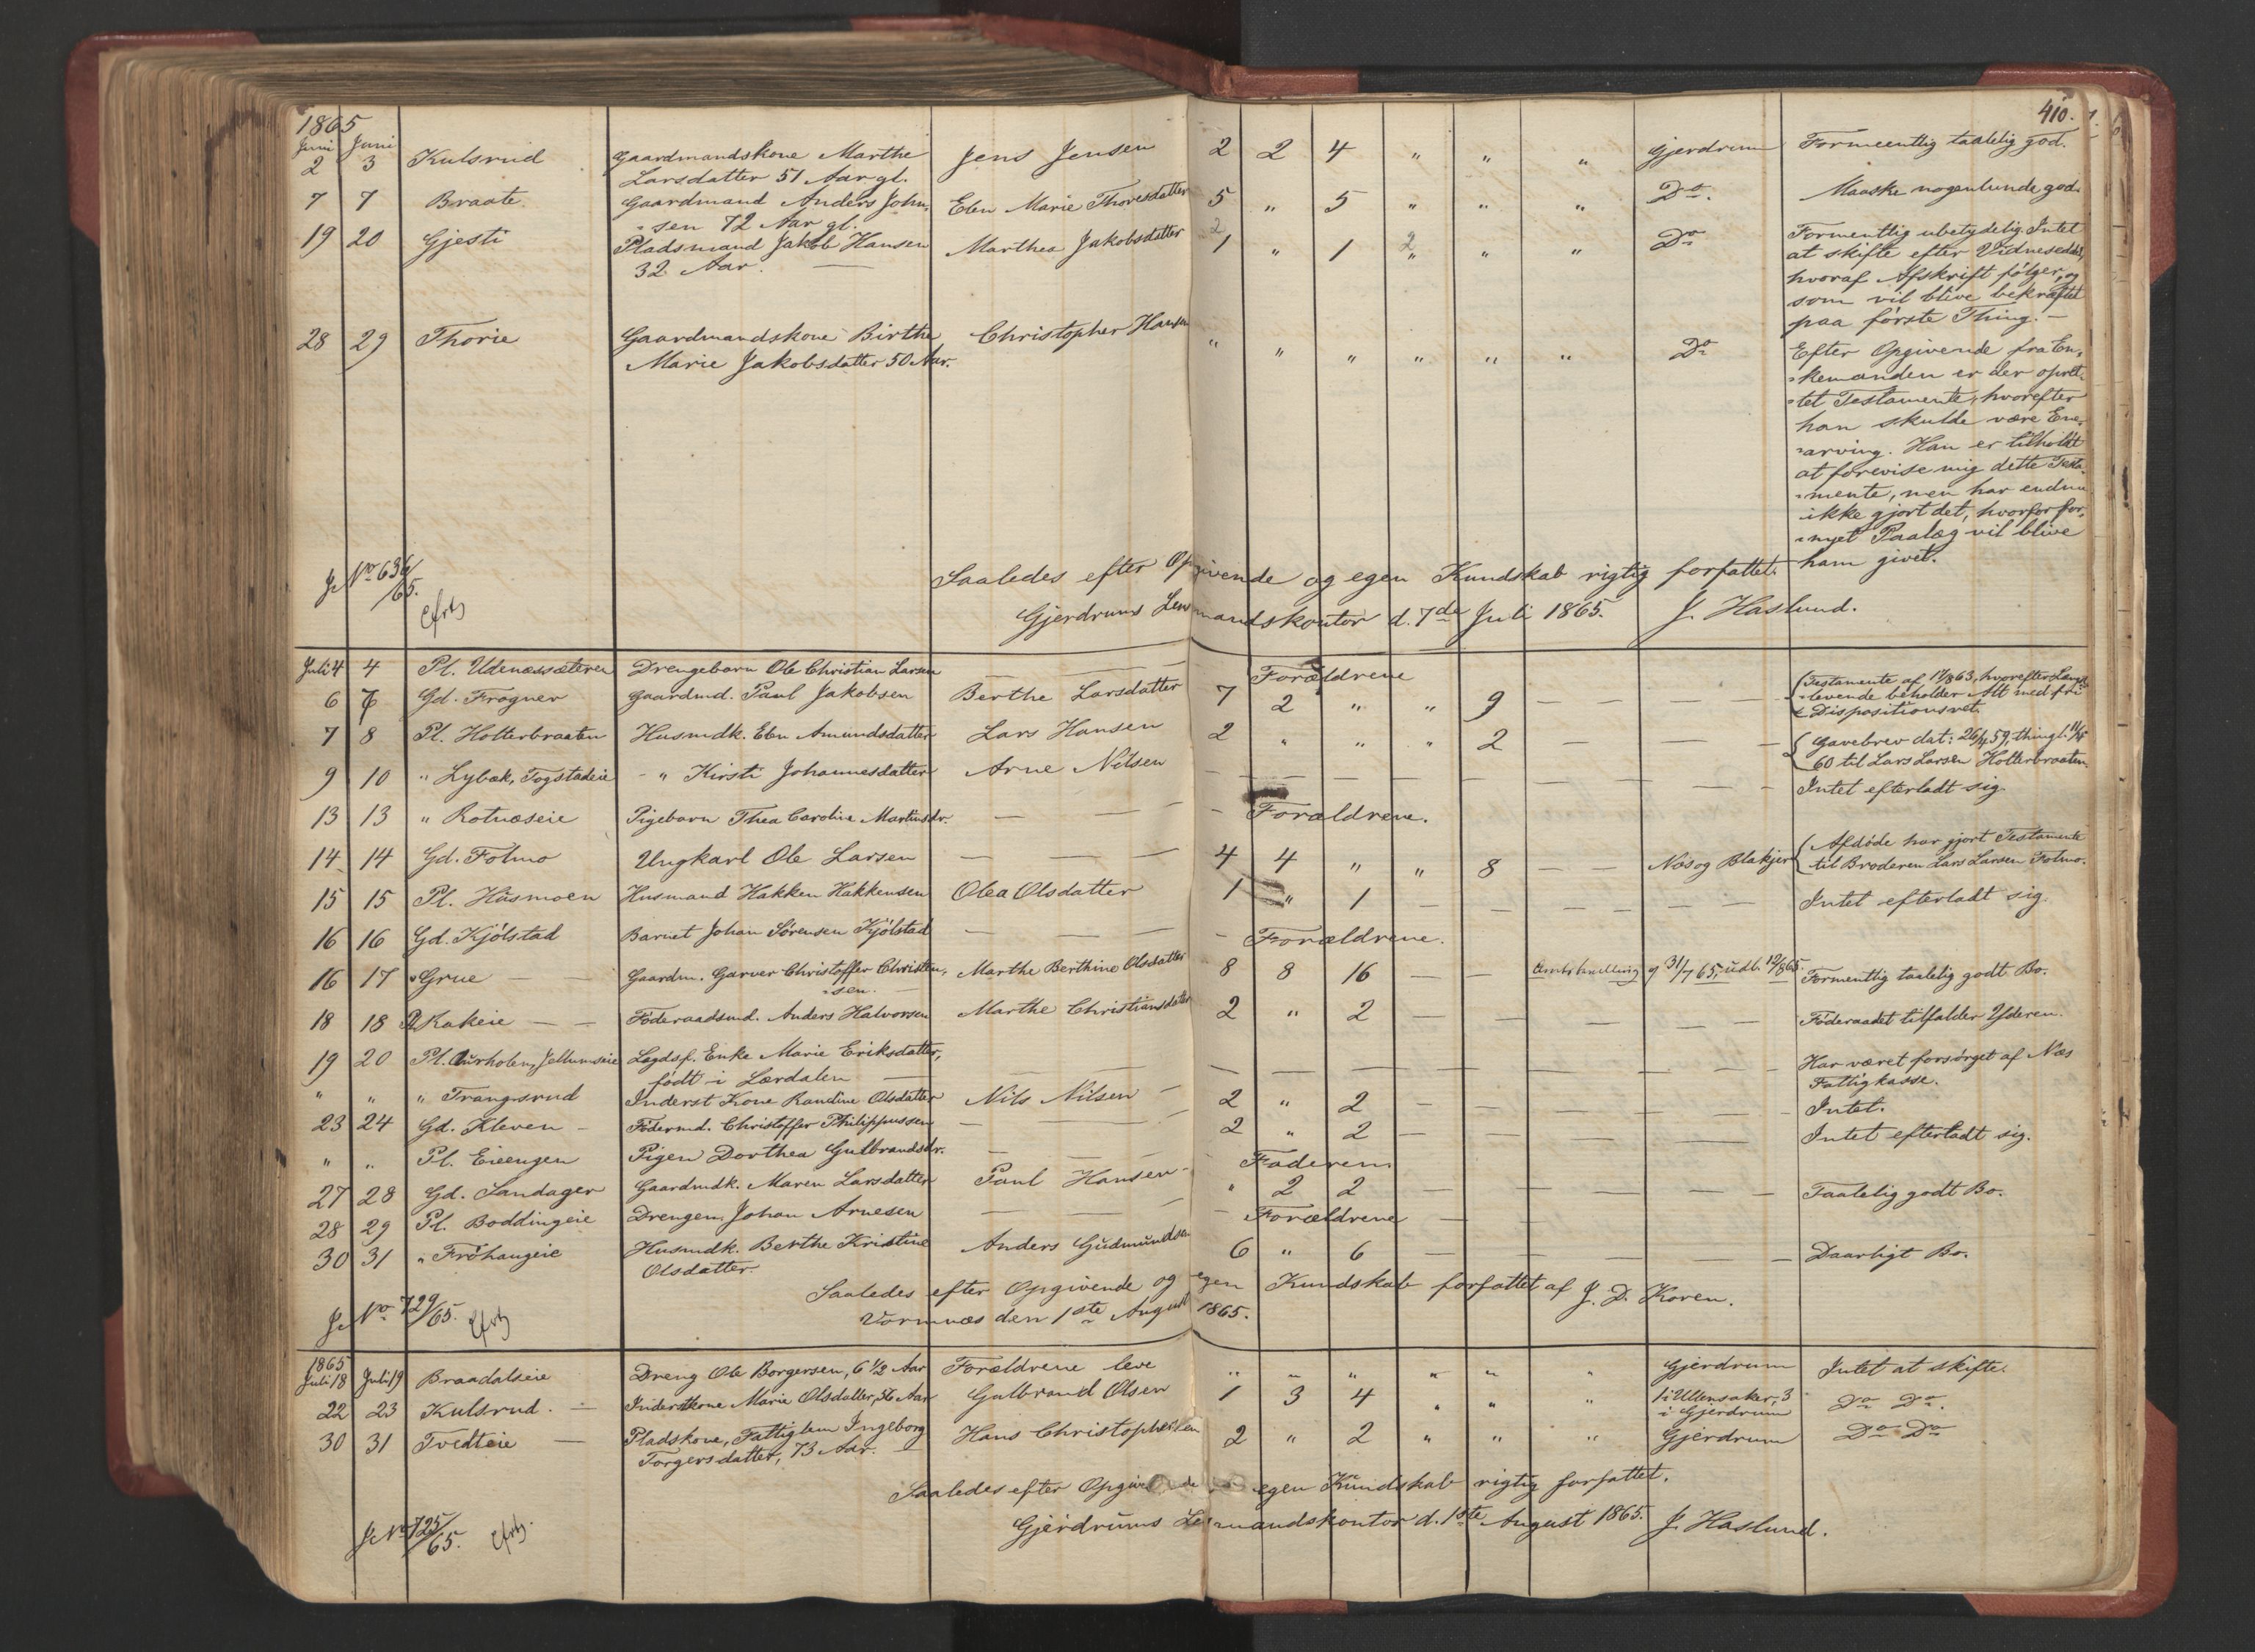 410.
1865
Juni Juni
2 3 Kulsrud Gaardmandskone Marthe Jens Jensen 2 2 4 " " " Gjerdrum Formeentlig taalelig god.
Larsdatter 51 Aar gl.
7 7 Braate Gaardmand Anders John- Elen Marie Thoresdatter 5 " 5 " " " Do. Maaske nogenlunde god.
sen 72 Aar gl.
19 20 Gjesti Pladsmand Jakob Hansen Marthea Jakobsdatter 2 1 " 1 2 " " " Do Formentlig ubetydelig. Intet
32 Aar. at skifte efter Vidneseddel,
hvoraf Afskrift følger, og
som vil blive bekræftet
paa første Thing. —
28 29 Thorie Gaardmandskone Birthe Christopher Hansen " " " " " " Do Efter Opgivende fra En-
Marie Jakobsdatter 50 Aar. kemanden er der opret-
tet Testamente, hvorefter
han skulde være Ene-
arving. Han er tilholdt
at forevise mig dette Testa-
mente, men har endnu
ikke gjort det, hvorfor for-
nyet Paalæg vil blive
ham givet.
Saaledes efter Opgivende og egen Kundskab rigtig forfattet.
J No 636/65.
Gjerdrums Lensmandskontor d. 7de Juli 1865. J. Haslund.
Juli 4 4 Pl. Udenæssæteren Drengebarn Ole Christian Larsen — — Forældrene
6 6 Gd. Frogner Gaardmd. Paul Jakobsen Berthe Larsdatter 7 2 " " 9 — — — — Testamente af 17/8 63, hvorefter Længst-
levende beholder Alt med fri
Dispositionsret.
7 8 Pl. Holterbraaten Husmdk. Elen Amundsdatter Lars Hansen 2 " " " 2 — — — Gavebrev dat: 26/4 59, thingl. 11/5
60 til Lars Larsen Holterbraaten.
9 10 " Lybæk, Togstadeie — " Kirsti Johannesdatter Arne Nilsen — — — — — — — — Intet efterladt sig.
13 13 " Rotnæseie Pigebarn Thea Caroline Martinsdr. — — — Forældrene.
14 14 Gd. Folmo Ungkarl Ole Larsen — — — 4 4 " " 8 — — Næs og Blakjer Afdøde har gjort Testamente
til Broderen Lars Larsen Folmo.
15 15 Pl. Husmoen Husmand Hakken Hakkensen Olea Olsdatter 1 " 1 — — — — — Intet efterladt sig.
16 16 Gd. Kjølstad Barnet Johan Sørensen Kjølstad — — — Forældrene.
16 17 " Grue — — Gaardm. Garver Christoffer Christen- Marthe Berthine Olsdatter 8 8 16 — — 31/7 65, udl. 12/8 65. Formentlig taalelig godt Bo.
sen. —
18 18 Pl Kakeie — — Føderaadsmd. Anders Halvorsen Marthe Christiansdatter 2 " 2 — — — — — Føderaadet tilfalder Yderen.
19 20 Pl. Aurholen, Jellumseie Lægdsf. Enke Marie Eriksdatter, — — — — — — — — Har været forsørget af Næs
født i Lærdalen — Fattigkasse.
" " " Trangsrud Inderst Kone Randine Olsdatter Nils Nilsen — 2 " 2 — — — — — Intet.
23 24 Gd. Kleven — Fødermd. Christoffer Philippussen — — 2 " 2 — — — — — Intet efterladt sig.
" " Pl. Eieengen Pigen Dorthea Gulbrandsdr. — — — Faderen.
27 28 Gd. Sandager Gaardmdk. Maren Larsdatter Paul Hansen — " 2 2 — — — — — Taalelig godt Bo.
28 29 Pl. Boddingeie Drengen Johan Arnesen — — — Forældrene —
30 31 " Frøhaugeie Husmdk. Berthe Kristine Anders Gudmundsen 6 " 6 — — — — — Daarligt Bo.
Olsdatter.
Saaledes efter Opgivende og egen Kundskab forfattet af J. D. Koren.
J No 729/65.
Vormnæs den 1ste August 1865.
1865
Juli 18 Juli 19 Braadalseie Dreng Ole Borgersen, 6 1/2 Aar Forældrene leve " " " " " " Gjerdrum Intet at skifte.
22 23 Kulsrud. — Inderstkone Marie Olsdatter, 36 Aar Gulbrand Olsen 1 3 4 " " " 1 i Ullensaker, 3 Do Do.
i Gjerdrum
30 31 Tvedteie — Pladskone, Fattiglem Ingeborg Hans Christophersen 2 " 2 " " " Gjerdrum Do Do
Torgersdatter, 73 Aar. —
Saaledes efter Opgivende og egen Kundskab rigtig forfattet.
J No 725/65.
Gjerdrums Lensmandskontor d. 1ste August 1865. J. Haslund.